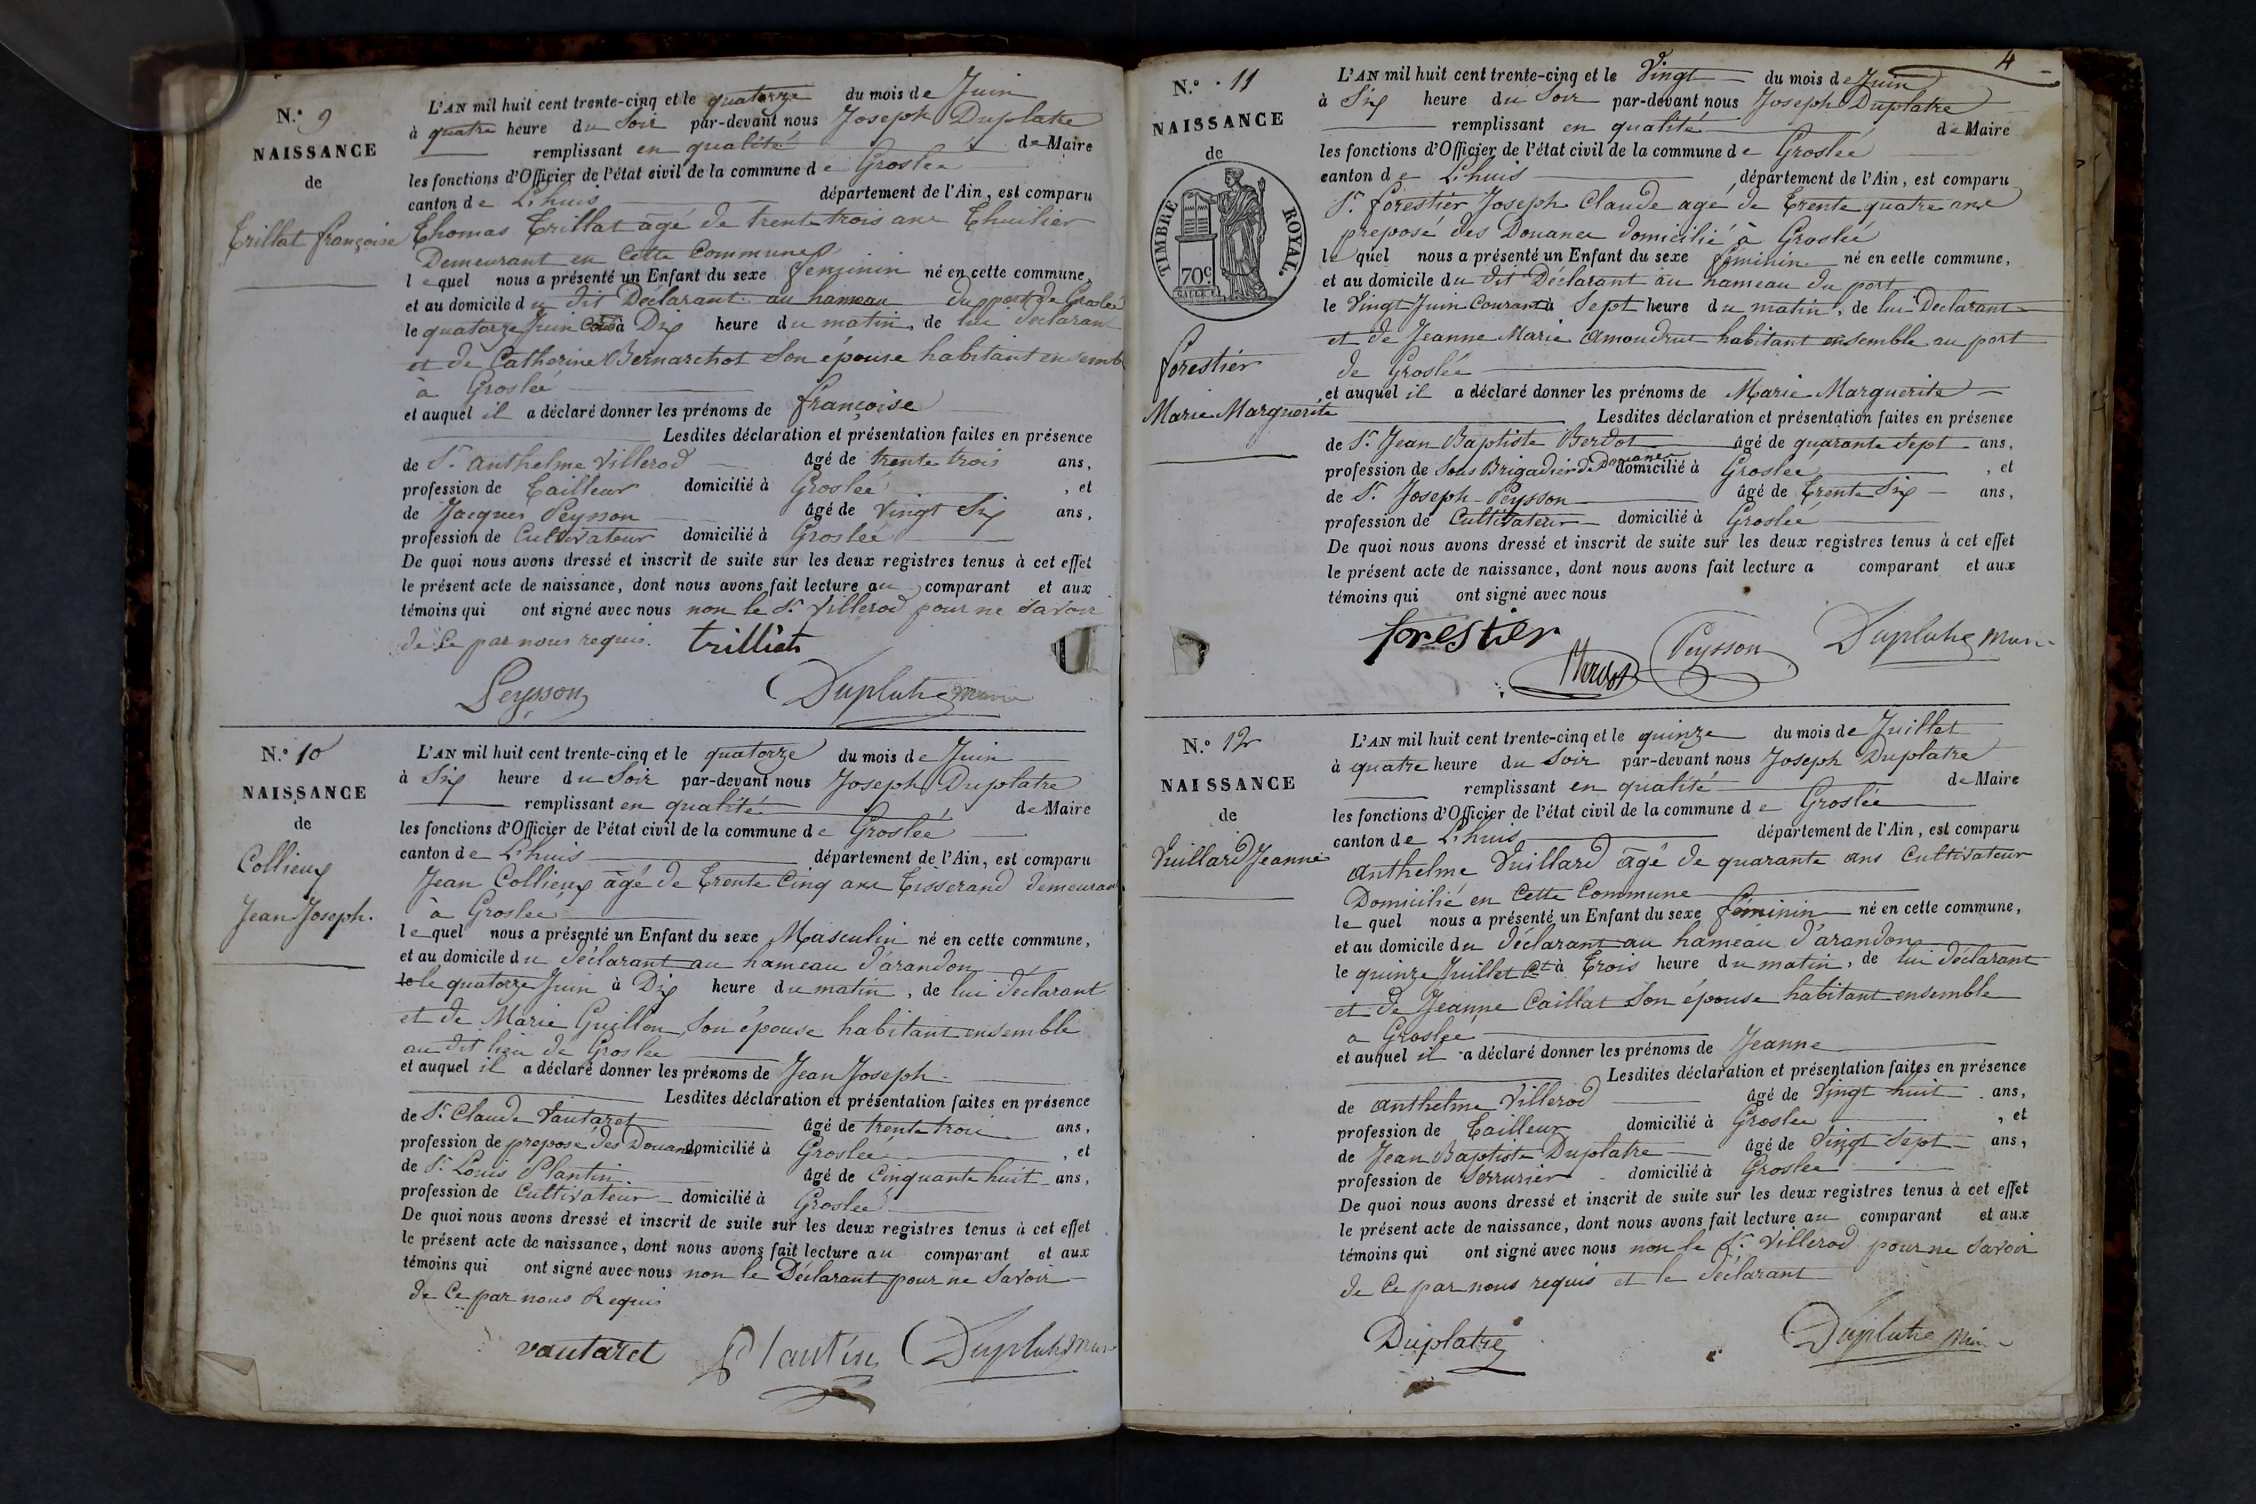 N.° 9
NAISSANCE
de
Trillat françoise
L'AN mil huit cent trente-cinq et le quatorze du mois de Juin
à quatre heure du Soir par-devant nous Joseph Duplatre
remplissant en qualité de Maire
les fonctions d'Officier de l'état civil de la commune de Groslée
canton de L'huis département de l'Ain, est comparu
Thomas Trillat âgé de trente trois ans
Demeurant en Cette Commune
lequel nous a présenté un Enfant du sexe féminin né en cette commune,
et au domicile du dit Déclarant au hameau du port de Groslée
le quatorze Juin à Dix heure du matin, de lui déclarant
et de Catherine Bernarchot Son épouse habitant ensemb
à Groslée
et auquel il a déclaré donner les prénoms de françoise
Lesdites déclaration et présentation faites en présence
de Sr. Anthelme Villerod âgé de trente trois ans,
profession de Tailleur domicilié à Groslée, et
de Jacques Peysson âgé de Vingt Six ans,
profession de Cultivateur domicilié à Groslée
De quoi nous avons dressé et inscrit de suite sur les deux registres tenus à cet effet
le présent acte de naissance, dont nous avons fait lecture au comparant et aux
témoins qui ont signé avec nous non le Sr. Villerod pour ne Savoir
de Ce par nous requis. trilliat
Peysson Duplatre maire
N.° 10
NAISSANCE
de
Collieux
Jean Joseph.
L'AN mil huit cent trente-cinq et le quatorze du mois de Juin
à Six heure du Soir par-devant nous Joseph Duplatre
remplissant en qualité de Maire
les fonctions d'Officier de l'état civil de la commune de Groslée
canton de L'huis département de l'Ain, est comparu
Jean Collieux âgé de Trente Cinq ans Tisserand demeurant
à Groslée
lequel nous a présenté un Enfant du sexe Masculin né en cette commune,
et au domicile du déclarant au hameau d'arandon
le le quatorze Juin à Dix heure du matin, de lui déclarant
et de Marie Guillon, Son épouse habitant ensemble
au dit lieu de Groslée
et auquel il a déclaré donner les prénoms de Jean Joseph
Lesdites déclaration et présentation faites en présence
de Sr. Claude Vautaret âgé de trente trois ans,
profession de preposé des Douanes domicilié à Groslée, et
de Sr. Louis Plantin. âgé de Cinquante huit ans,
profession de Cultivateur domicilié à Groslée
De quoi nous avons dressé et inscrit de suite sur les deux registres tenus à cet effet
le présent acte de naissance, dont nous avons fait lecture au comparant et aux
témoins qui ont signé avec nous non le Déclarant pour ne Savoir
de Ce par nous Requis
vautaret Plantin Duplatre maire
4
N.° 11
NAISSANCE
de
TIMBRE ROYAL.
70c.
forestier
Marie Marguerite
L'AN mil huit cent trente-cinq et le Vingt du mois de Juin
à Six heure du Soir par-devant nous Joseph Duplatre
remplissant en qualité de Maire
les fonctions d'Officier de l'état civil de la commune de Groslée
canton de L'huis département de l'Ain, est comparu
Sr. forestier Joseph Claude agé de Trente quatre ans
preposé des Douanes domicilié à Groslée
lequel nous a présenté un Enfant du sexe féminin né en cette commune,
et au domicile du dit Déclarant au hameau du port
le Vingt Juin Courant à Sept heure du matin, de lui Déclarant
et de Jeanne Marie Amoudrut habitant ensemble au port
de Groslée
et auquel il a déclaré donner les prénoms de Marie Marguerite
Lesdites déclaration et présentation faites en présence
de Sr. Jean Baptiste Berdot âgé de quarante Sept ans,
profession de Sous Brigadier de Douanes domicilié à Groslée, et
de Sr. Joseph Peysson âgé de Trente Six ans,
profession de Cultivateur domicilié à Groslée
De quoi nous avons dressé et inscrit de suite sur les deux registres tenus à cet effet
le présent acte de naissance, dont nous avons fait lecture a comparant et aux
témoins qui ont signé avec nous
forestier Berdot Peysson Duplatre maire
N.° 12
NAISSANCE
de
Vuillard Jeanne
L'AN mil huit cent trente-cinq et le quinze du mois de Juillet
à quatre heure du Soir par-devant nous Joseph Duplatre
remplissant en qualité de Maire
les fonctions d'Officier de l'état civil de la commune de Groslée
canton de L'huis département de l'Ain, est comparu
Anthelme Vuillard âgé de quarante ans Cultivateur
Domicilié en Cette Commune
lequel nous a présenté un Enfant du sexe féminin né en cette commune,
et au domicile du déclarant au hameau d'arandon
le quinze Juillet Ct à Trois heure du matin, de lui déclarant
et de Jeanne Caillat Son épouse habitant ensemble
a Groslée
et auquel il a déclaré donner les prénoms de Jeanne
Lesdites déclaration et présentation faites en présence
de Anthelme Villerod âgé de Vingt huit ans,
profession de Tailleur domicilié à Groslée, et
de Jean Baptiste Duplatre âgé de Vingt Sept ans,
profession de Serrurier domicilié à Groslée
De quoi nous avons dressé et inscrit de suite sur les deux registres tenus à cet effet
le présent acte de naissance, dont nous avons fait lecture au comparant et aux
témoins qui ont signé avec nous non le Sr. Villerod pour ne Savoir
de Ce par nous requis et le déclarant
Duplatre Duplatre maire